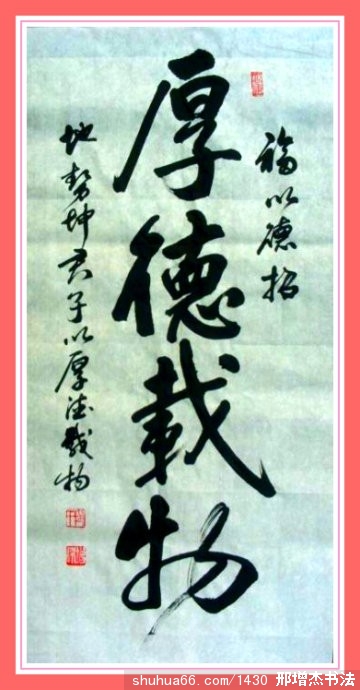 福以德招
厚德载物
地势坤君子以厚德载物
shuhua66.com/1430 邢增杰书法